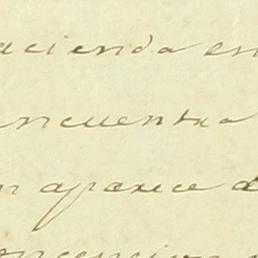 acienda en
ncuentra
n aparece d